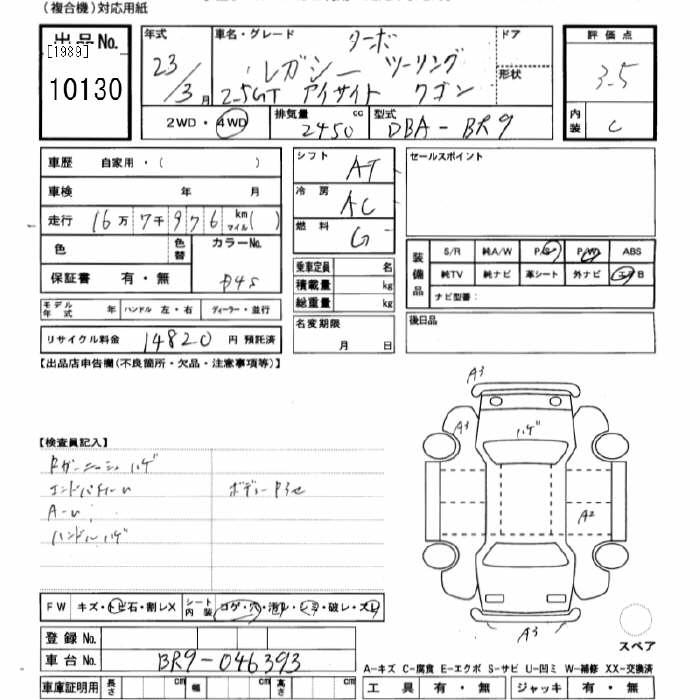 (複合機)対応用紙
出品No.
[1989]
10130
年式
23/3月
車名・グレード
ターボ
レガシー ツーリング
2.5GT アイサイト ワゴン
ドア
形状
評価点
3.5
内装
C
2WD・4WD
排気量
2450 cc
型式
DBA-BR9
車歴 自家用・( )
車検 年 月
走行 16万7千976 km マイル( )
色
色替
カラーNo.
P4S
保証書 有・無
モデル年式 年 ハンドル 左・右 ディーラー・並行
リサイクル料金 14820 円 預託済
シフト AT
冷房 AC
燃料 G
乗車定員 名
積載量 kg
総重量 kg
名変期限
月 日
セールスポイント
装備品
S/R 純A/W P/S P/W ABS
純TV 純ナビ 革シート 外ナビ エアB
ナビ型番:
後日品
【出品店申告欄(不良箇所・欠品・注意事項等)】
【検査員記入】
ハゲ
ハンドルハゲ
A3
A3
ハゲ
A2
A3
スペア
FW キズ・トビ石・割レX
シート内装 コゲ・穴・汚レ・シミ・破レ・スレ
登録No.
車台No. BR9-046393
車庫証明用 長さ cm 幅 cm 高さ cm
A-キズ C-腐食 E-エクボ S-サビ U-凹ミ W-補修 XX-交換済
工具 有・無 ジャッキ 有・無